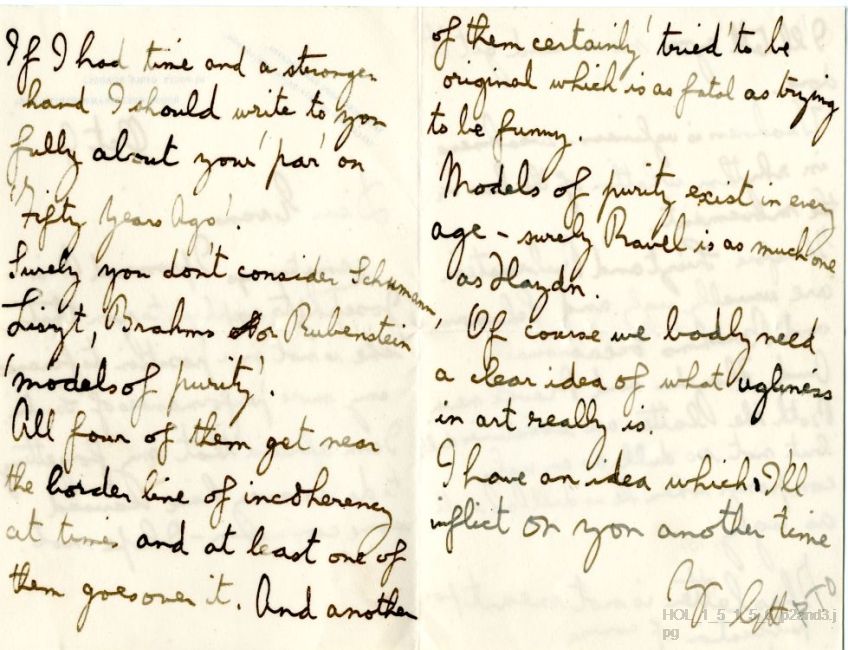 If I had time and a stronger
hand I should write to you
fully about your 'par' on
'Fifty Years Ago'.
Surely you don't consider Schumann,
Liszt, Brahms or Rubenstein
'models of purity'.
All four of them get near
the border line of incoherency
at times and at least one of
them goes over it. And another
of them certainly 'tried' to be
original which is as fatal as trying
to be funny.
Models of purity exist in every
age - surely Ravel is as much one
as Haydn.
Of course we badly need
a clear idea of what ugliness
in art really is.
I have an idea which I'll
inflict on you another time
HOL_1_5_1_5_6_p2and3.j
pg